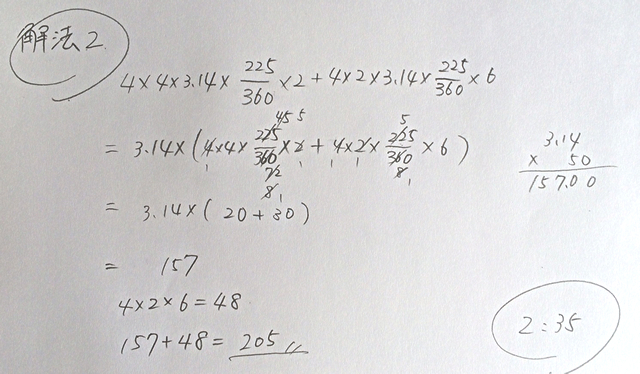 解法2
4×4×3.14× 225/360 ×2+4×2×3.14× 225/360 ×6
45 5 5
= 3.14×(4×4× 225/360 ×2+4×2× 225/360 ×6)
1 72 1 1 1 8 1
8 1
= 3.14×(20+30)
= 157
4×2×6=48
157+48=205
3.14
× 50
157.00
2:35